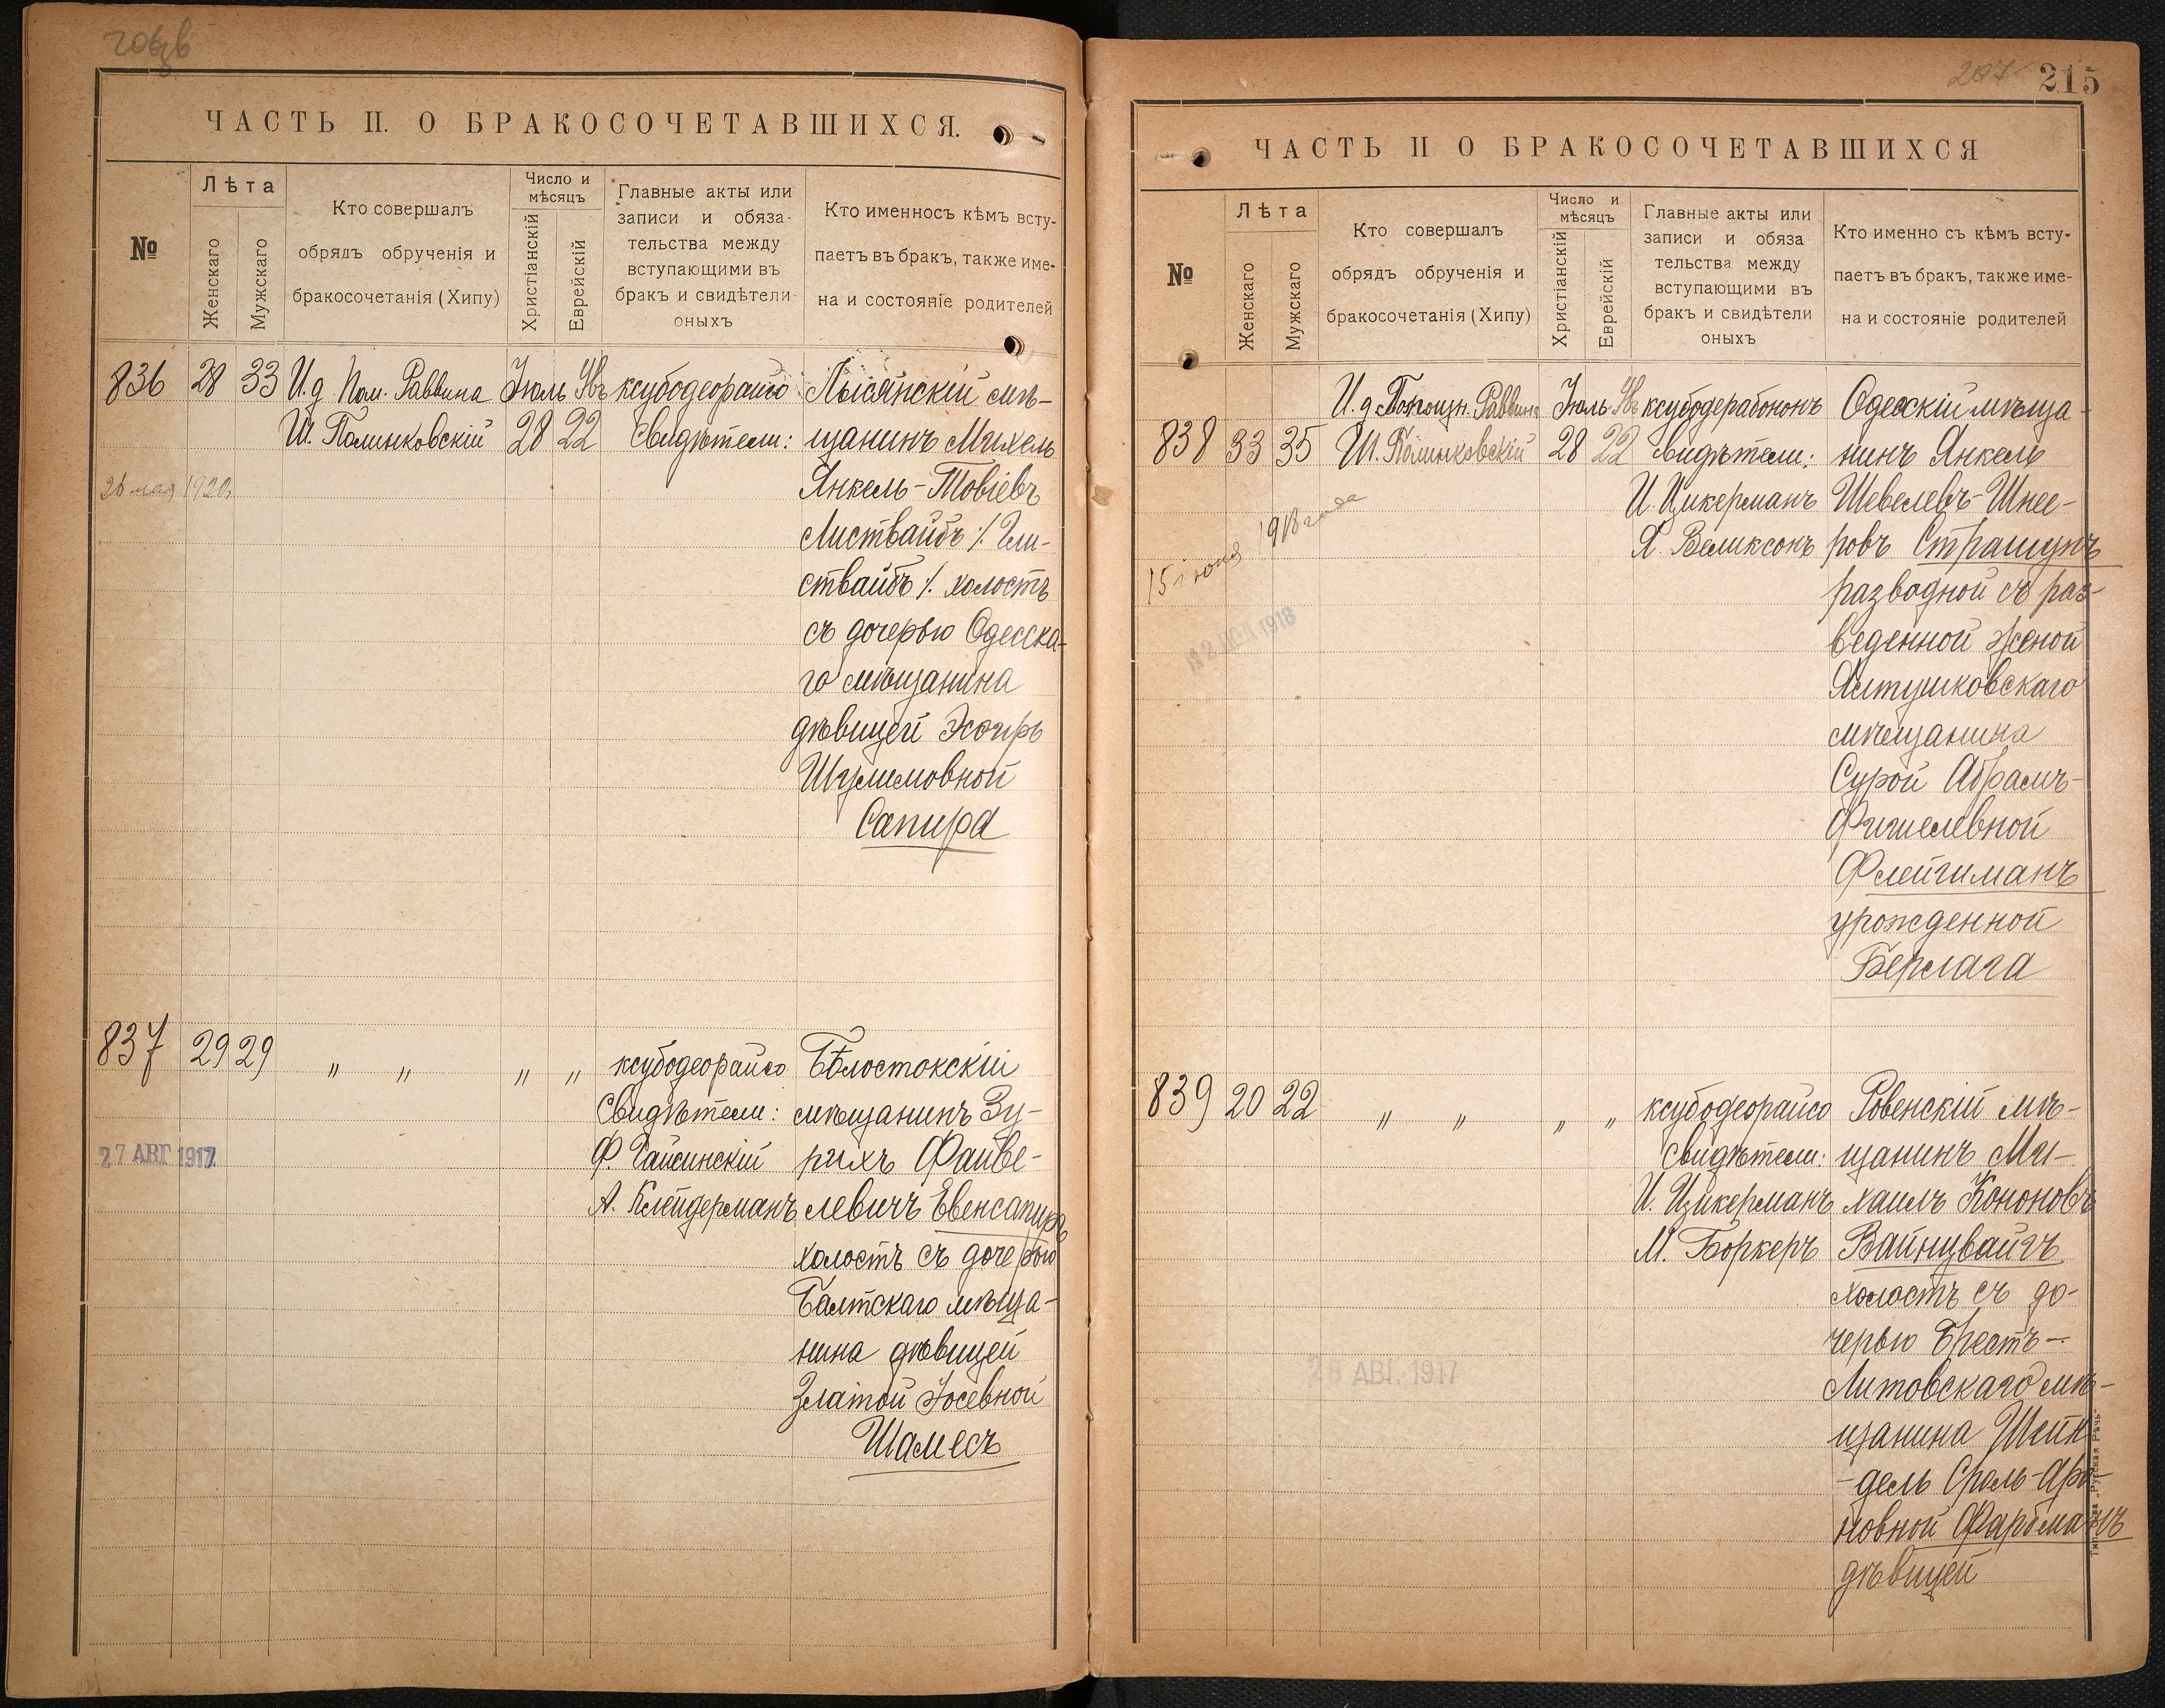 ЧАСТЬ II. О БРАКОСОЧЕТАВШИХСЯ.
№
Лѣта
Женскаго
Мужскаго
Кто совершалъ
обрядъ обрученія и
бракосочетанія (Хипу)
Число и
мѣсяцъ
Христіанскій
Еврейскій
Главные акты или
записи и обяза-
тельства между
вступающими въ
бракъ и свидѣтели
оныхъ
Кто именносъ кѣмъ всту-
паетъ въ бракъ, также име-
на и состояніе родителей
836 28 33
И. д. Пом. Раввина
Ш. Полинковскій
Іюль
28 22
ксубодеорайсо
Свидѣтели:
Лысянскій мѣ-
щанинъ Михель
Янкель-Товіевъ
Листвайбъ ⁒ Гли-
ствайбъ ⁒ холостъ
съ дочерью Одесска-
го мѣщанина
дѣвицей Эсѳирь
Шулимовной
Сапира
26 мая 1920г.
837 29 29 " " " "
ксубодеорайсо
Свидѣтели:
А. Клейдерманъ
Бѣлостокскій
мѣщанинъ Зу-
рихъ Файве-
левичъ Евенсапиръ
холостъ съ дочерью
Балтскаго мѣща-
нина дѣвицей
Златой Іосевной
Шамесъ
27 АВГ 1917
207 215
ЧАСТЬ II О БРАКОСОЧЕТАВШИХСЯ
№
Лѣта
Женскаго
Мужскаго
Кто совершалъ
обрядъ обрученія и
бракосочетанія (Хипу)
Число и
мѣсяцъ
Христіанскій
Еврейскій
Главные акты или
записи и обяза
тельства между
вступающими въ
бракъ и свидѣтели
оныхъ
Кто именно съ кѣмъ всту-
паетъ въ бракъ, также име-
на и состояніе родителей
838 33 35
И. д. Раввина
Ш. Полинковскій
Іюль
28 22
ксубодерабононъ
Свидѣтели:
И. Цикерманъ
Я. Великсонъ
Одесскій мѣща-
нинъ Янкель
Шевелевъ-Шнее-
ровъ Страшунъ
разводной съ раз-
веденной женой
Ялтушковскаго
мѣщанина
Сурой Абрамъ-
Фишелевной
Флейшманъ
урожденной
Берлага
15 іюня 1918 года
839 20 22 " " " "
ксубодеорайсо
Свидѣтели:
И. Цикерманъ
М. Боркеръ
Ровенскій мѣ-
щанинъ Ми-
хаилъ Кононовъ
Вайнцвайгъ
холостъ съ до-
черью Брестъ-
Литовскаго мѣ-
щанина Шейн
-дель Сроль-Аро-
новной Фарбманъ
дѣвицей
28 АВГ. 1917